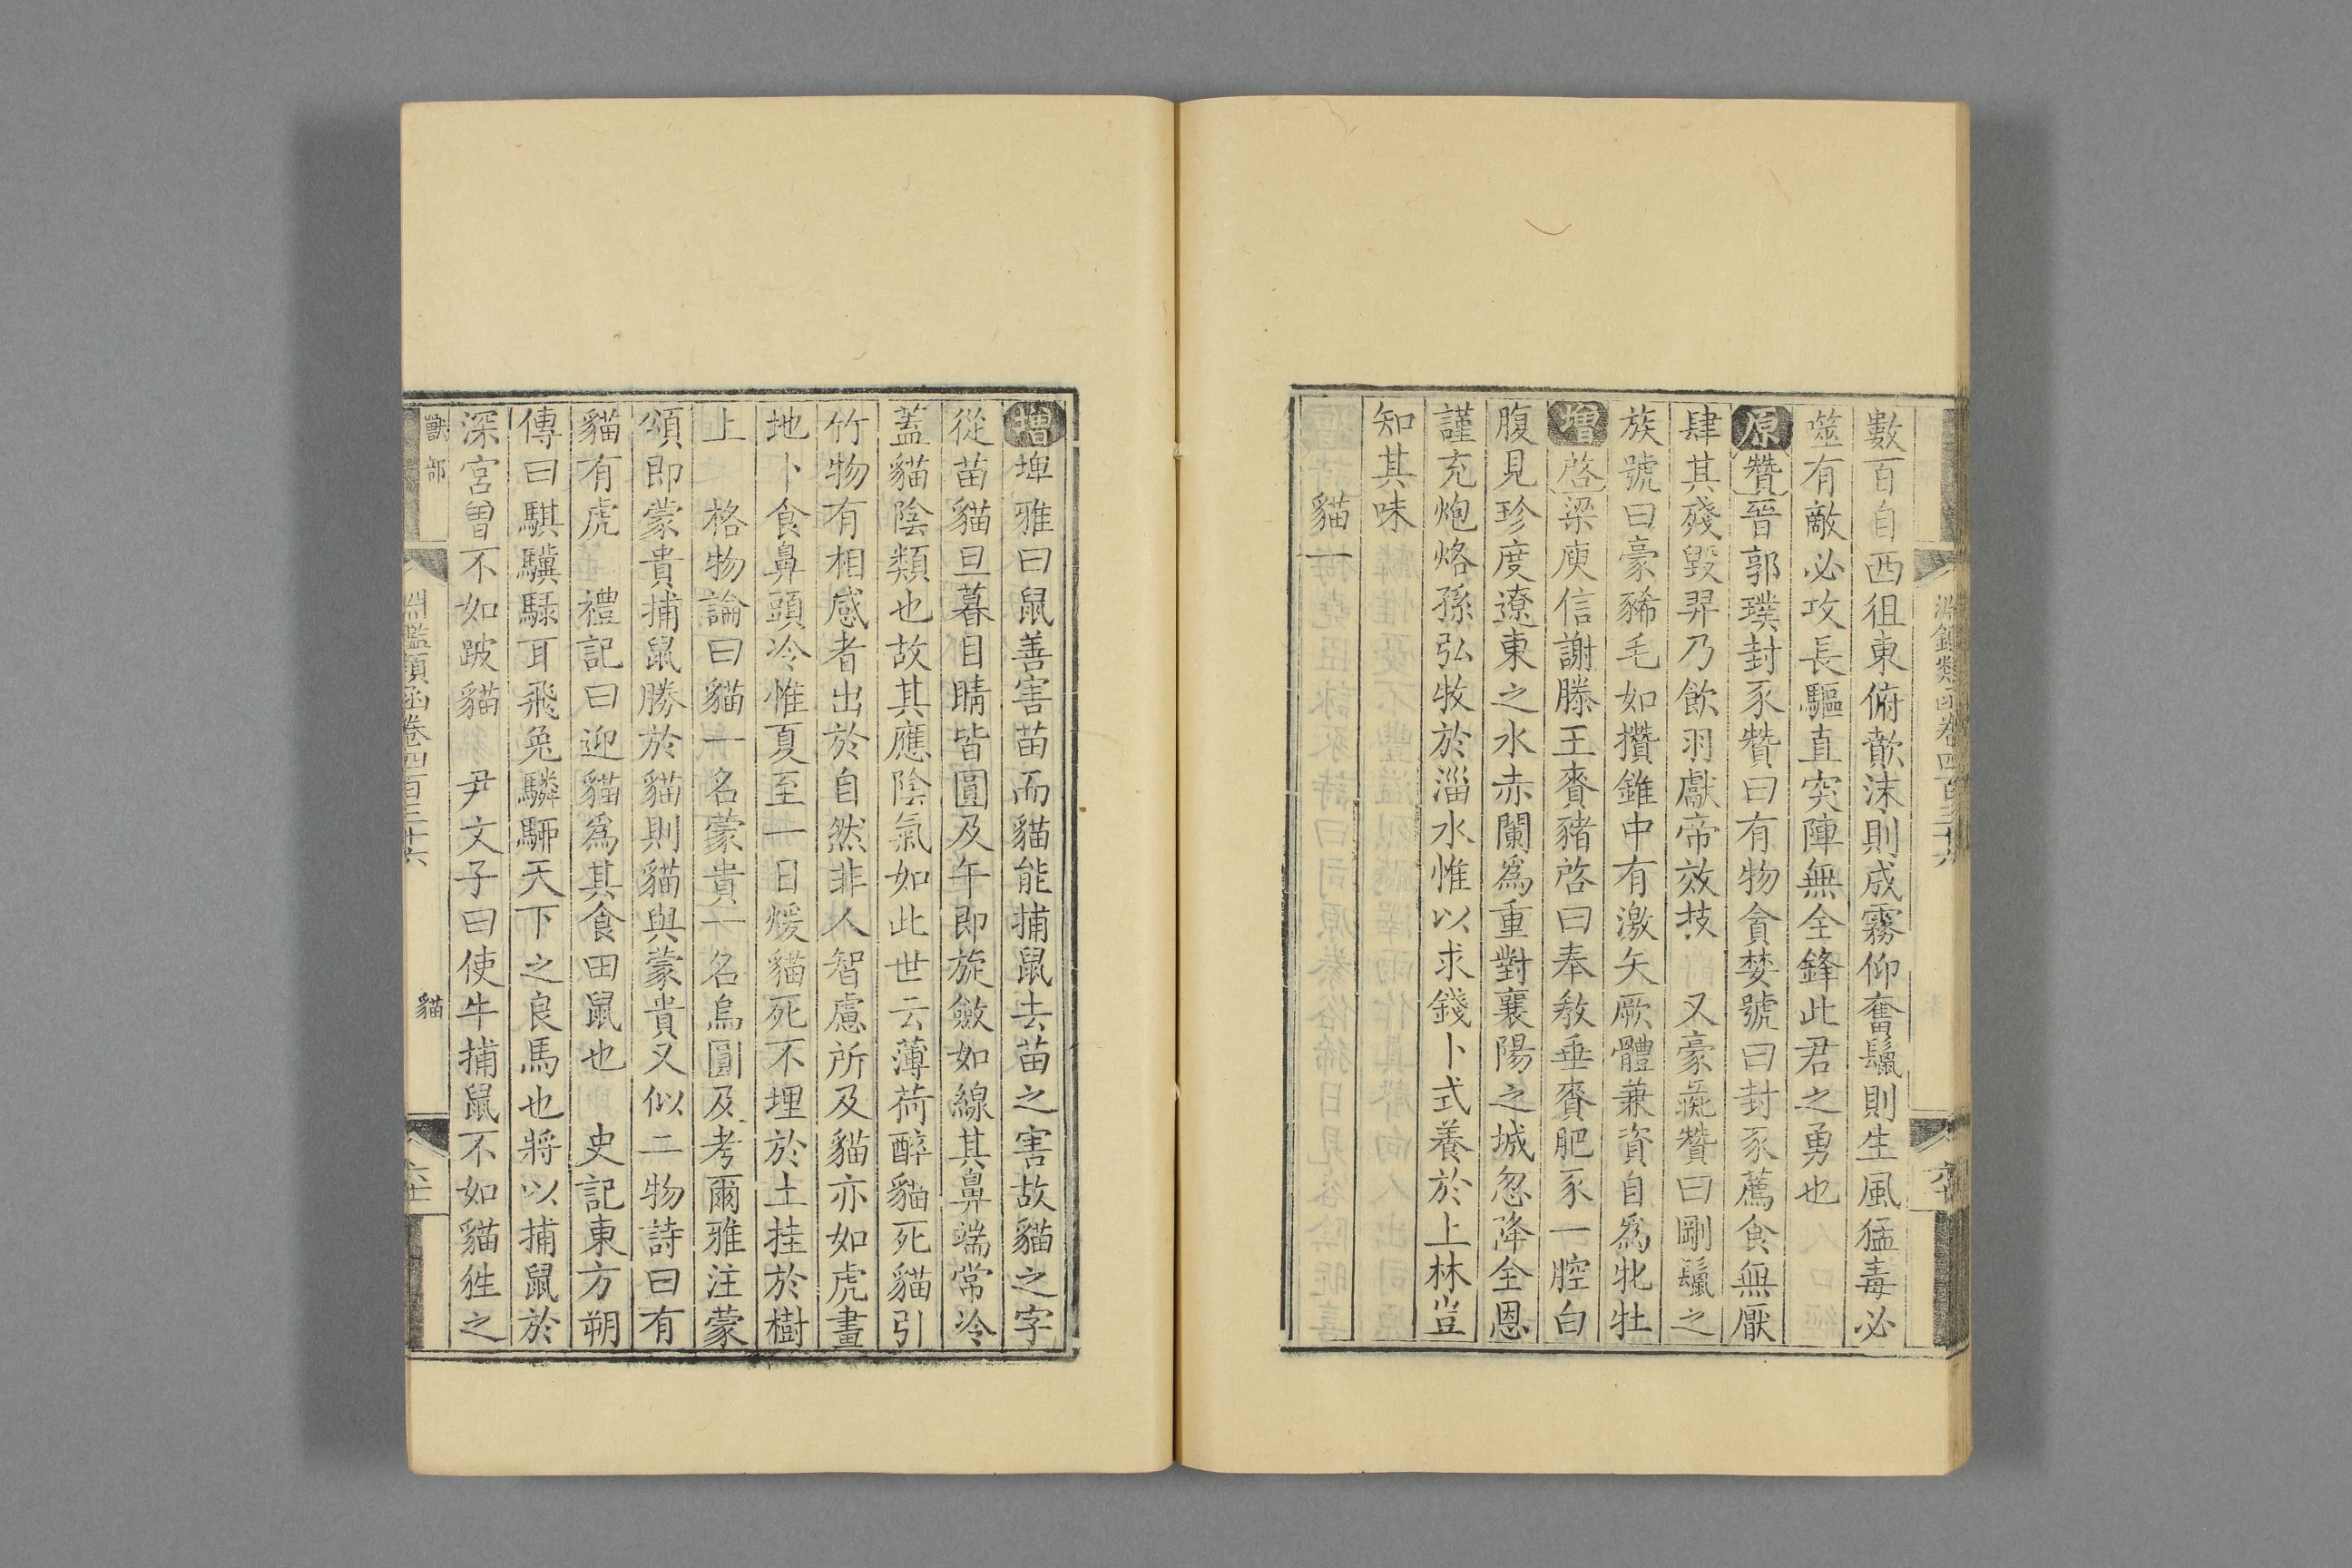 數百自西徂東俯歕沫則成霧仰奮鬣則生風猛毒必
噬有敵必攻長驅直突陣無全鋒此君之勇也
原贊晉郭璞封豕贊曰有物貪婪號曰封豕薦食無厭
肆其殘毀羿乃飲羽獻帝效技 又豪彘贊曰剛鬣之
族號曰豪豨毛如攢錐中有激矢厥體兼資自爲牝牡
增啓梁庾信謝滕王賚豬啓曰奉教垂賚肥豕一腔白
腹見珍度遼東之水赤闌爲重對襄陽之城忽降全恩
謹充炮烙孫弘牧於淄水惟以求錢卜式養於上林豈
知其味
貓一
增埤雅曰鼠善害苗而貓能捕鼠去苗之害故貓之字
從苗貓旦暮目睛皆圓及午即旋斂如線其鼻端常冷
蓋貓陰類也故其應陰氣如此世云薄荷醉貓死貓引
竹物有相感者出於自然非人智慮所及貓亦如虎畫
地卜食鼻頭冷惟夏至一日煖貓死不埋於土挂於樹
上 格物論曰貓一名蒙貴一名烏圓及考爾雅注蒙
頌即蒙貴捕鼠勝於貓則貓與蒙貴又似二物詩曰有
貓有虎 禮記曰迎貓爲其食田鼠也 史記東方朔
傳曰騏驥騄耳飛兔驎駬天下之良馬也將以捕鼠於
深宮曽不如跛貓 尹文子曰使牛捕鼠不如貓狌之
獸部
淵鑑類函卷四百三十六
貓